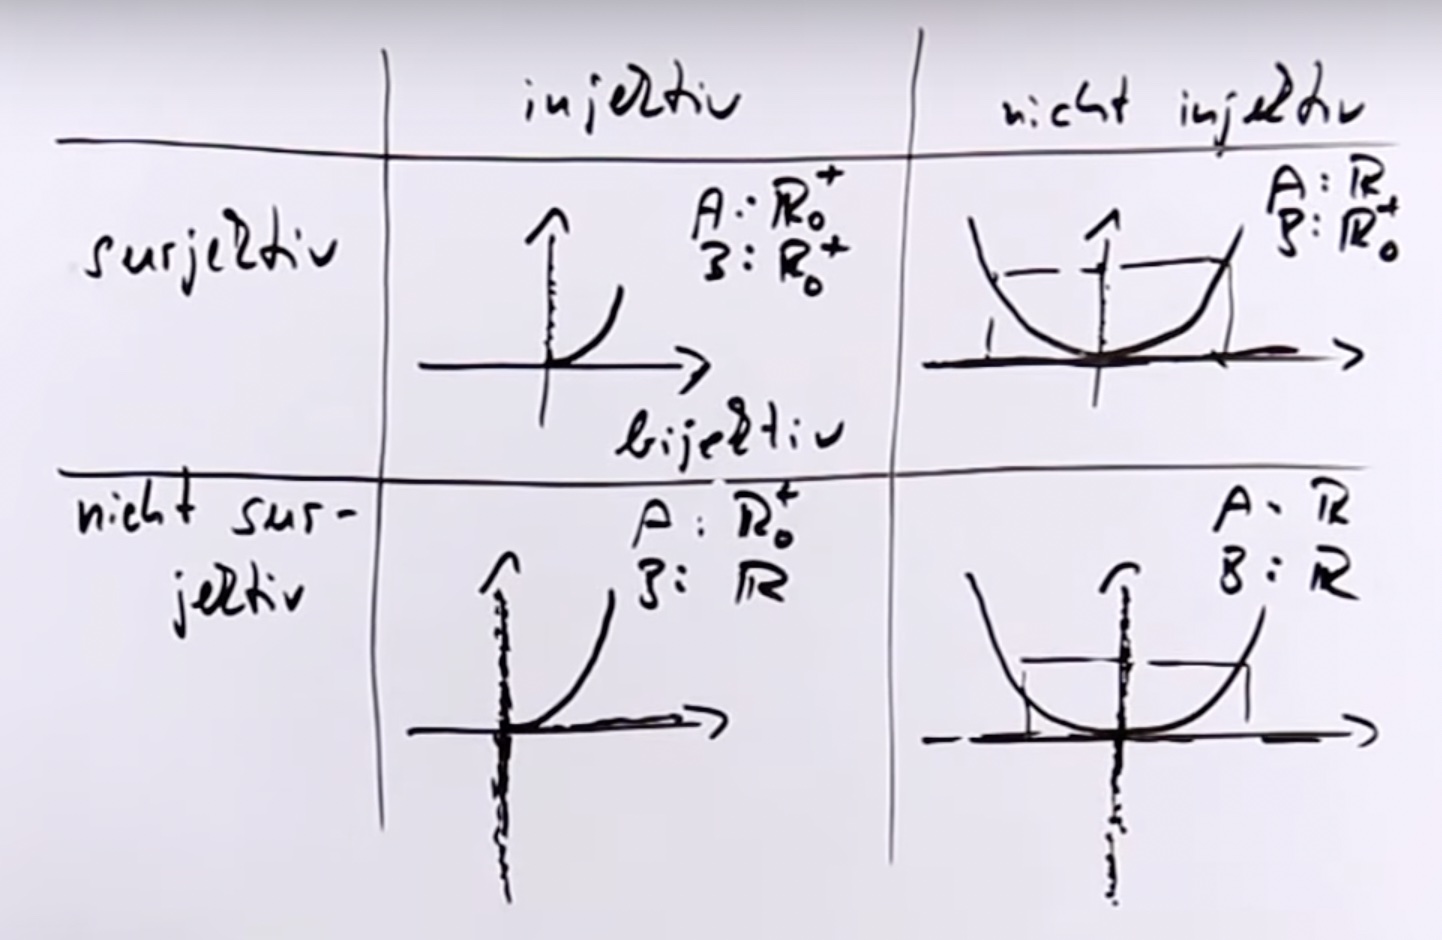 injektiv
nicht injektiv
surjektiv
A: ℝ₀⁺
B: ℝ₀⁺
bijektiv
A: ℝ
B: ℝ₀⁺
nicht sur-
jektiv
A: ℝ₀⁺
B: ℝ
A: ℝ
B: ℝ